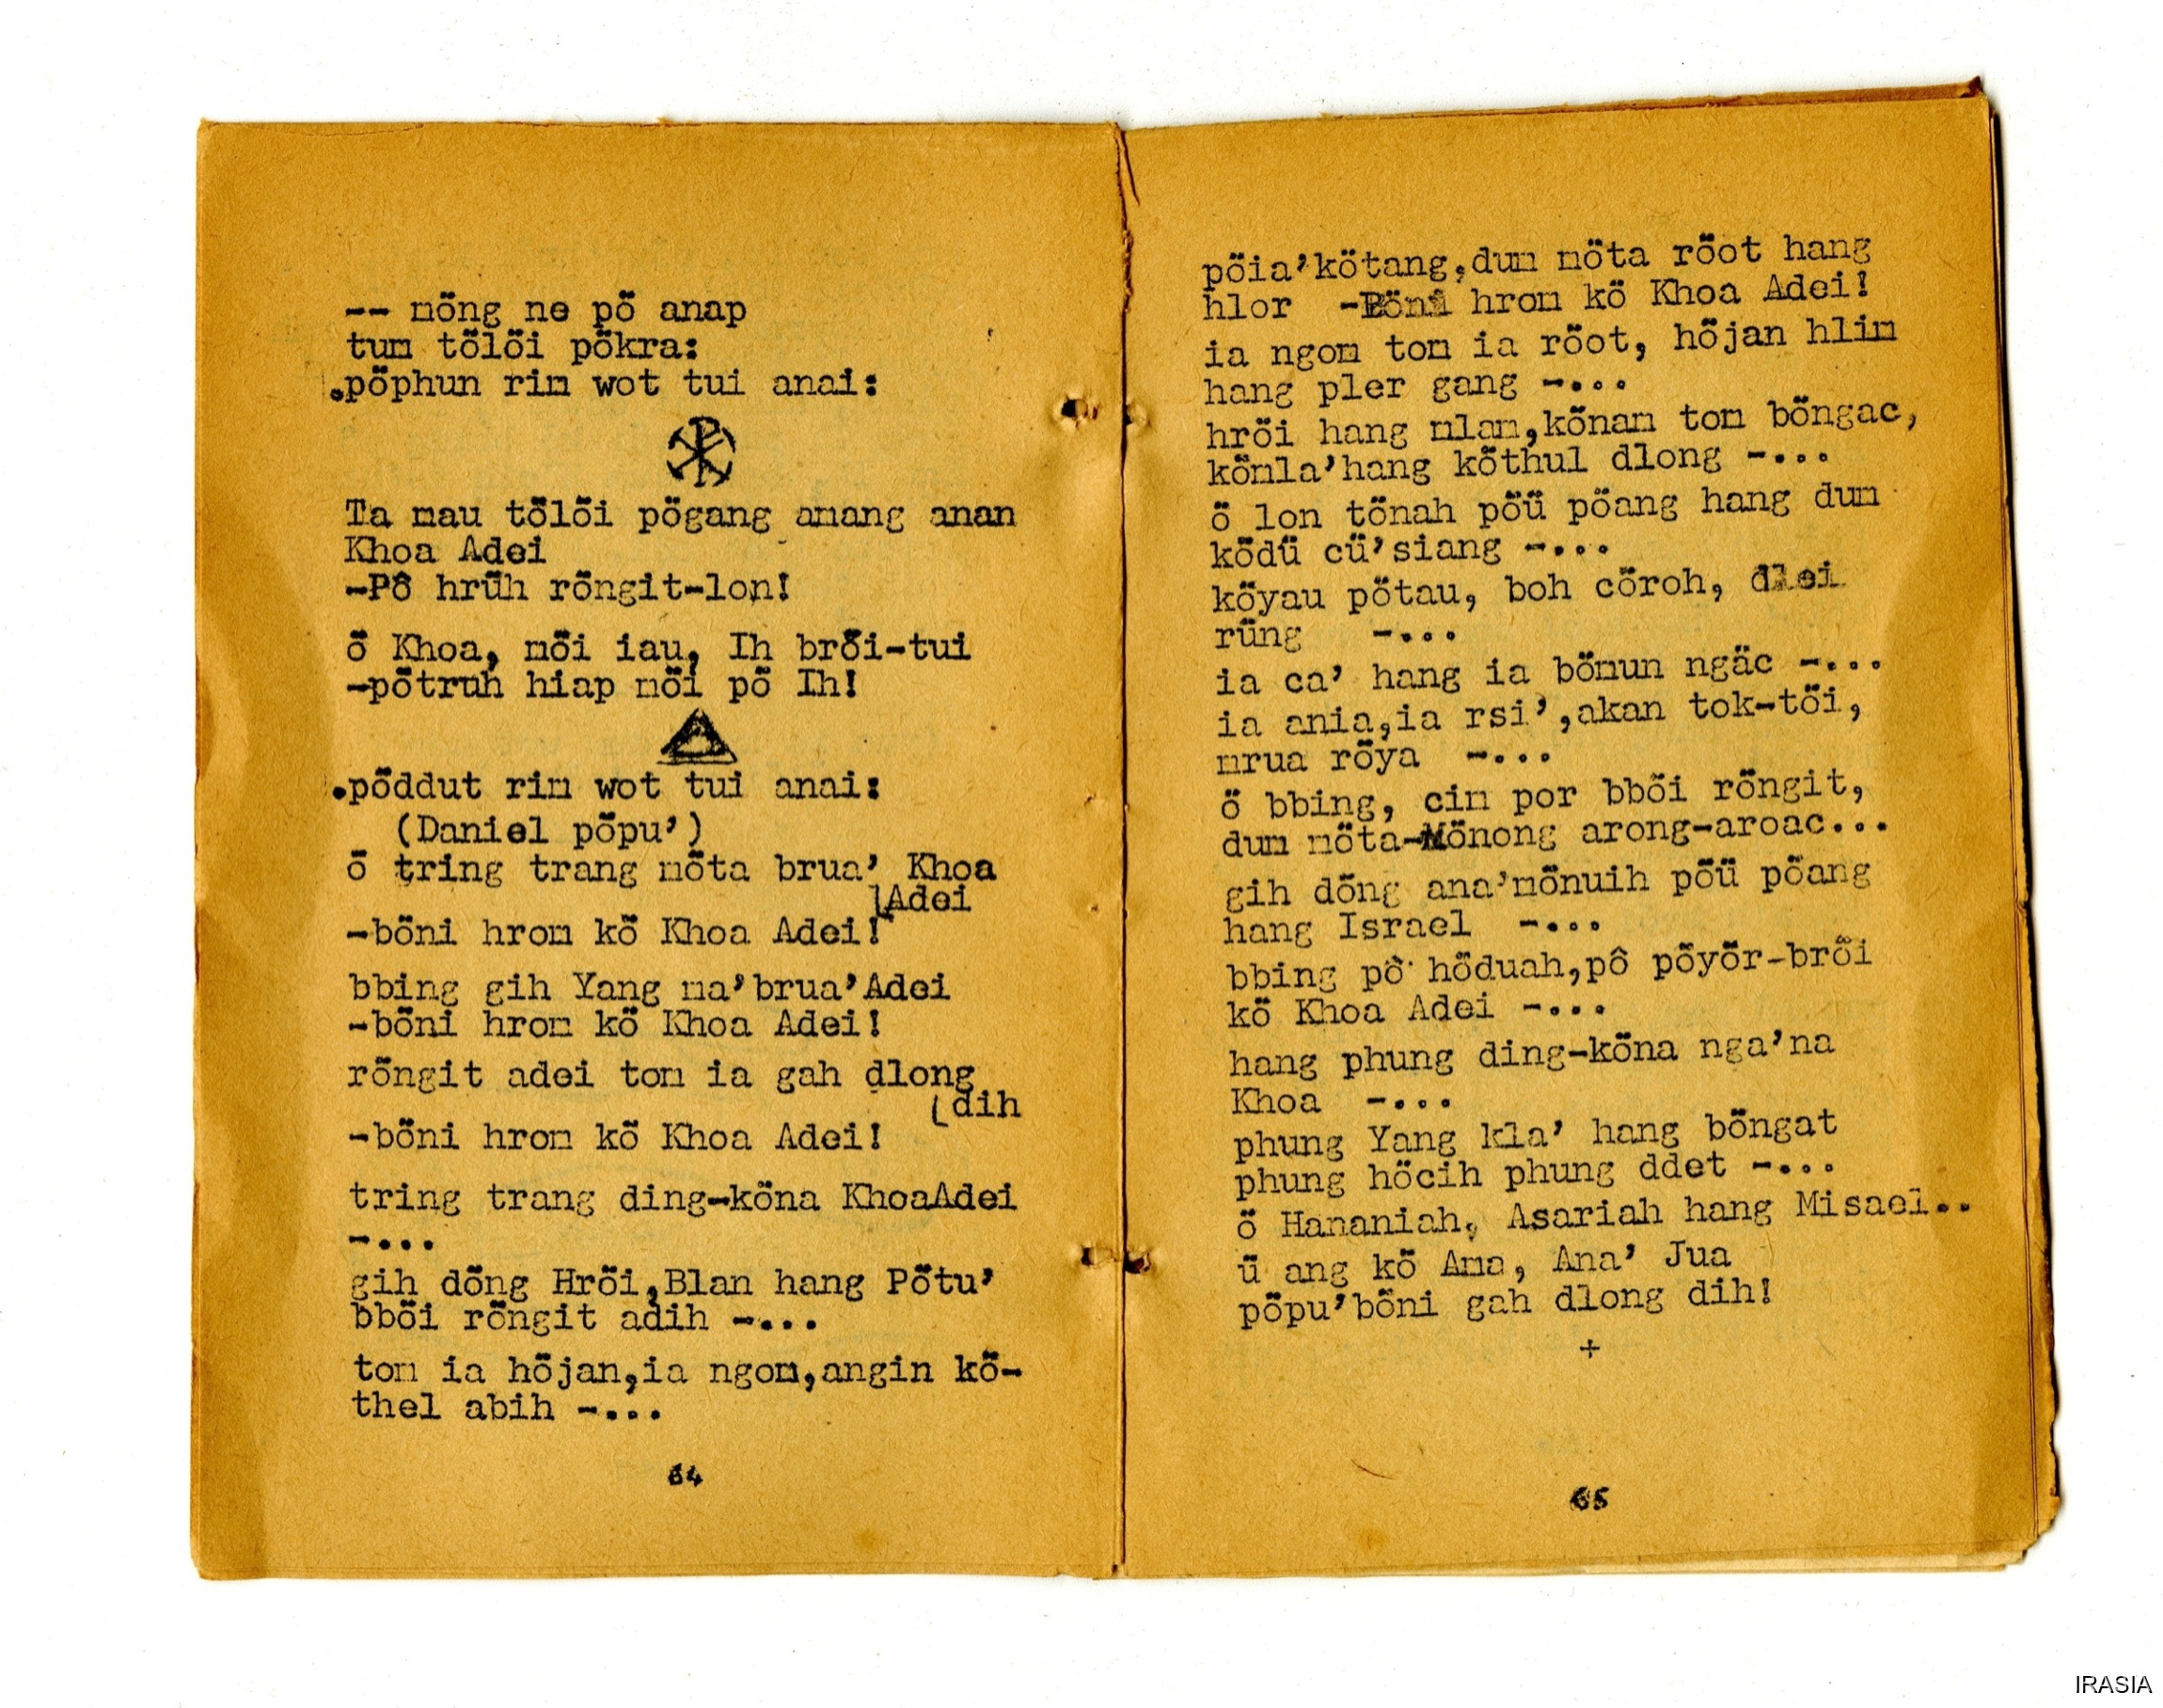 -- mơ̆ng ne pơ̆ anap
tum tơ̆lơ̆i pơ̆kra:
.pơ̆phun rim wot tui anai:
Ta mau tơ̆lơ̆i pơ̆gang amang anan
Khoa Adei
-Pô hrŭh rơ̆ngit-lon!
ơ̆ Khoa, mơ̆i iau, Ih brơ̆i-tui
-pơ̆truh hiap mơ̆i pơ̆ Ih!
.pơ̆ddut rim wot tui anai:
(Daniel pơ̆pu')
ơ̆ tring trang mơ̆ta brua' Khoa
Adei
-bơ̆ni hrom kơ̆ Khoa Adei!
bbing gih Yang ma'brua'Adei
-bơ̆ni hrom kơ̆ Khoa Adei!
rơ̆ngit adei tom ia gah dlong
dih
-bơ̆ni hrom kơ̆ Khoa Adei!
tring trang ding-kơ̆na KhoaAdei
-...
gih dơ̆ng Hrơ̆i,Blan hang Pơ̆tu'
bbơ̆i rơ̆ngit adih -...
tom ia hơ̆jan,ia ngom,angin kơ̆-
thel abih -...
64
pơ̆ia'kơ̆tang,dum mơ̆ta rơ̆ot hang
hlor -Bơ̆ni hrom kơ̆ Khoa Adei!
ia ngom tom ia rơ̆ot, hơ̆jan hlim
hang pler gang -...
hrơ̆i hang mlam,kơ̆nam tom bơ̆ngac,
kơ̆mla'hang kơ̆thul dlong -...
ơ̆ lon tơ̆nah pơ̆ŭ pơ̆ang hang dum
kơ̆dŭ cŭ'siang -...
kơ̆yau pơ̆tau, boh cơ̆roh, dlei
rŭng -...
ia ca' hang ia bơ̆mun ngăc -...
ia ania,ia rsi',akan tok-tơ̆i,
mrua rơ̆ya -...
ơ̆ bbing, cim por bbơ̆i rơ̆ngit,
dum mơ̆ta-Mơ̆nong arong-aroac...
gih dơ̆ng ana'mơ̆nuih pơ̆ŭ pơ̆ang
hang Israel -...
bbing pô hơ̆duah,pô pơ̆yơ̆r-brơ̆i
kơ̆ Khoa Adei -...
hang phung ding-kơ̆na nga'na
Khoa -...
phung Yang kla' hang bơ̆ngat
phung hơ̆cih phung ddet -...
ơ̆ Hananiah, Asariah hang Misael..
ŭ ang kơ̆ Ama, Ana' Jua
pơ̆pu'bơ̆ni gah dlong dih!
+
65
IRASIA